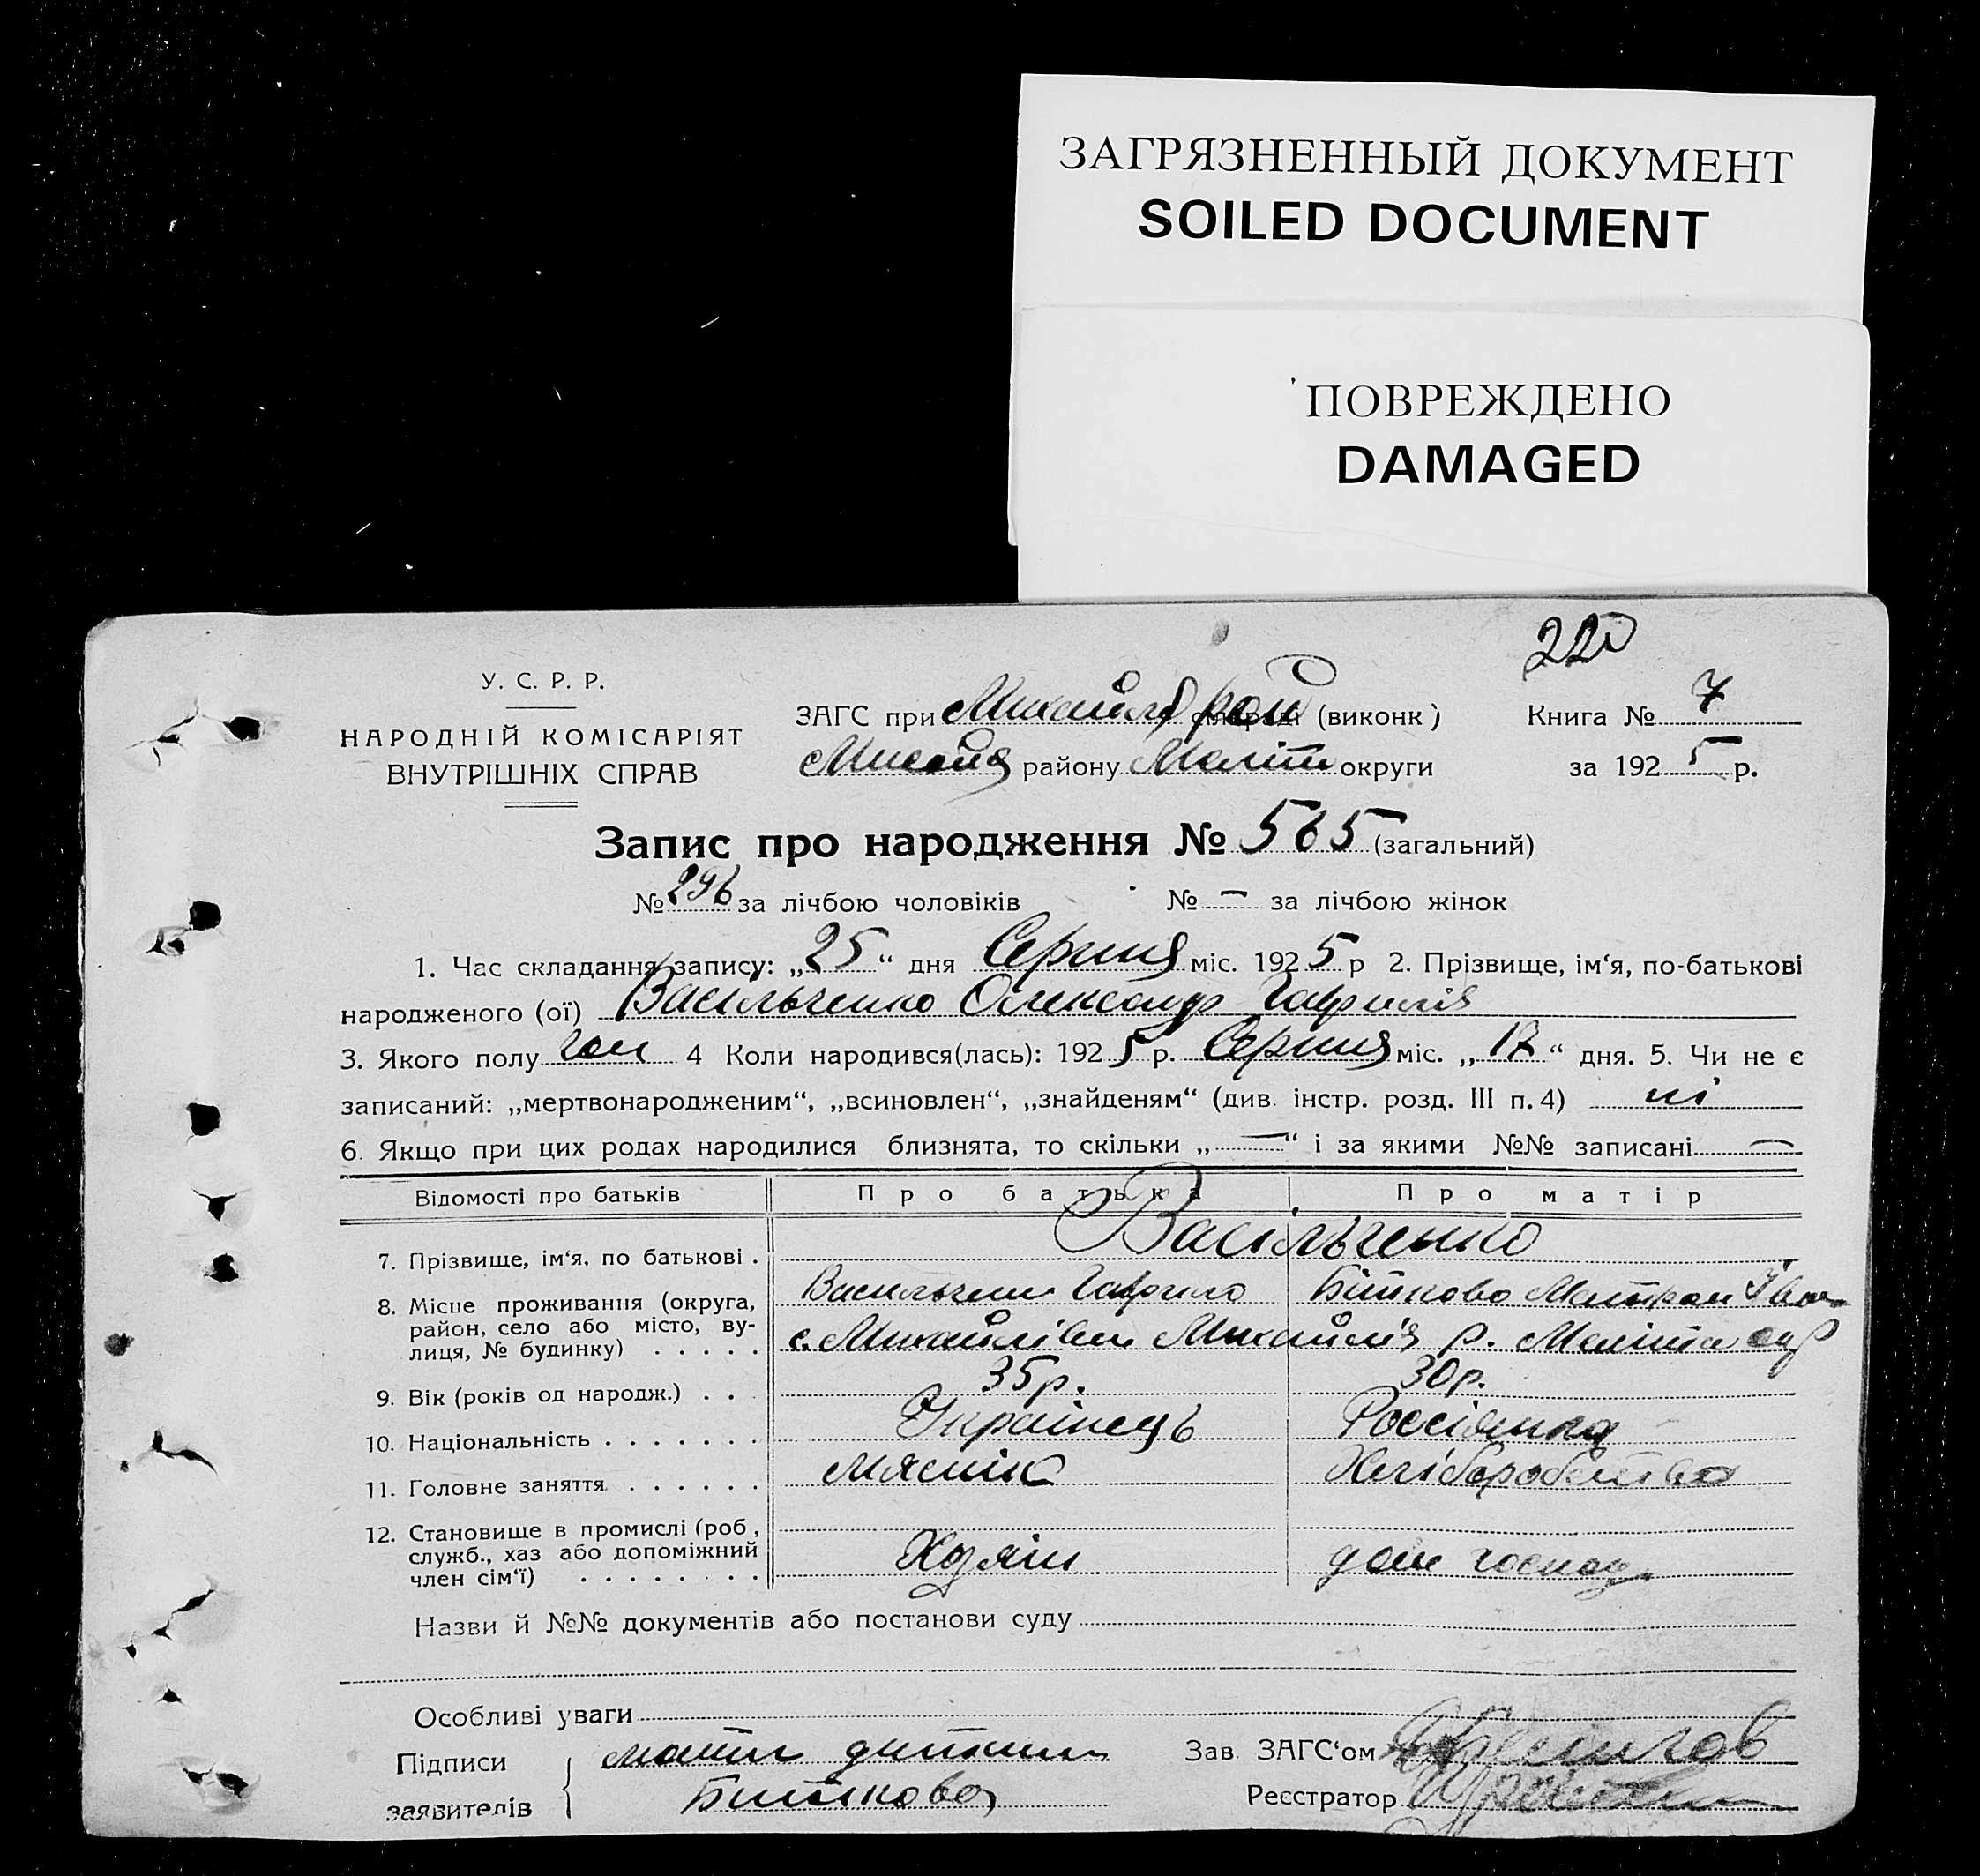 ЗАГРЯЗНЕННЫЙ ДОКУМЕНТ
SOILED DOCUMENT
ПОВРЕЖДЕНО
DAMAGED
220
У. С. Р. Р.
НАРОДНІЙ КОМІСАРІЯТ
ВНУТРІШНІХ СПРАВ
ЗАГС при Михайлів рай (виконк)
району Меліт округи
Книга № 7
за 1925 р.
Запис про народження № 565 (загальний)
№ 296 за лічбою чоловіків № — за лічбою жінок
1. Час складання запису: „25“ дня Серпня міс. 1925 р 2. Прізвище, ім‘я, по-батькові
народженого (ої) Васільченко Олександр Гаврилів
3. Якого полу чол 4 Коли народився(лась): 1925 р. Серпня міс. „17“ дня. 5. Чи не є
записаний: „мертвонародженим“, „всиновлен“, „знайденям“ (див. інстр. розд. III п. 4) ні
6. Якщо при цих родах народилися близнята, то скільки „—“ і за якими №№ записані —
Відомості про батьків Про батька Про матір
7. Прізвище, ім‘я, по батькові . Васільченко
Васильченко Гаврило Бітково Мотрон Іван
8. Місце проживання (округа,
район, село або місто, ву-
лиця, № будинку) . . . . . с. Михайлівки Михайлів р. Меліта окр
9. Вік (років од народж.) . . . 35р. 30р.
10. Національність . . . . . . . Українець Россіянка
11. Головне заняття . . . . . . мясник Хліборобство
12. Становище в промислі (роб.,
служб., хаз або допоміжний
член сім‘ї) . . . . . . . . Хозяін дом господ.
Назви й №№ документів або постанови суду
Особливі уваги
Підписи
заявителів
мати дитини
Биткова
Зав. ЗАГС‘ом
Реєстратор